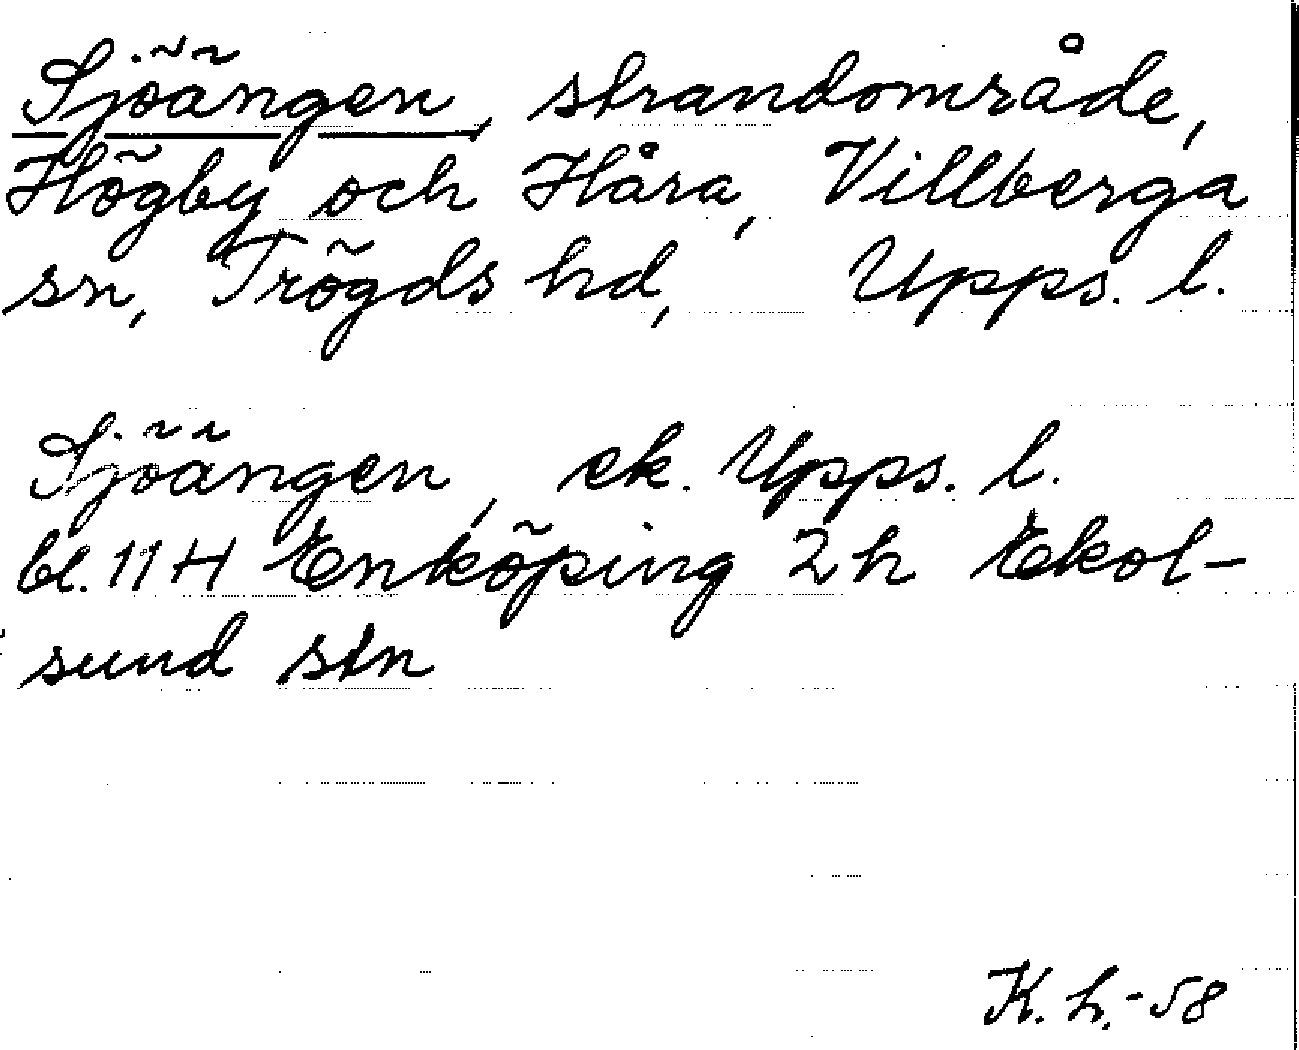 Sjöängen, strandområde,
Högby och Håra, Villberga
sn, Trögds hd, Upps. l.
Sjöängen, ek. Upps. l.
bl. 11 H Enköping 2 h Ekol-
sund stn
K. h. -58